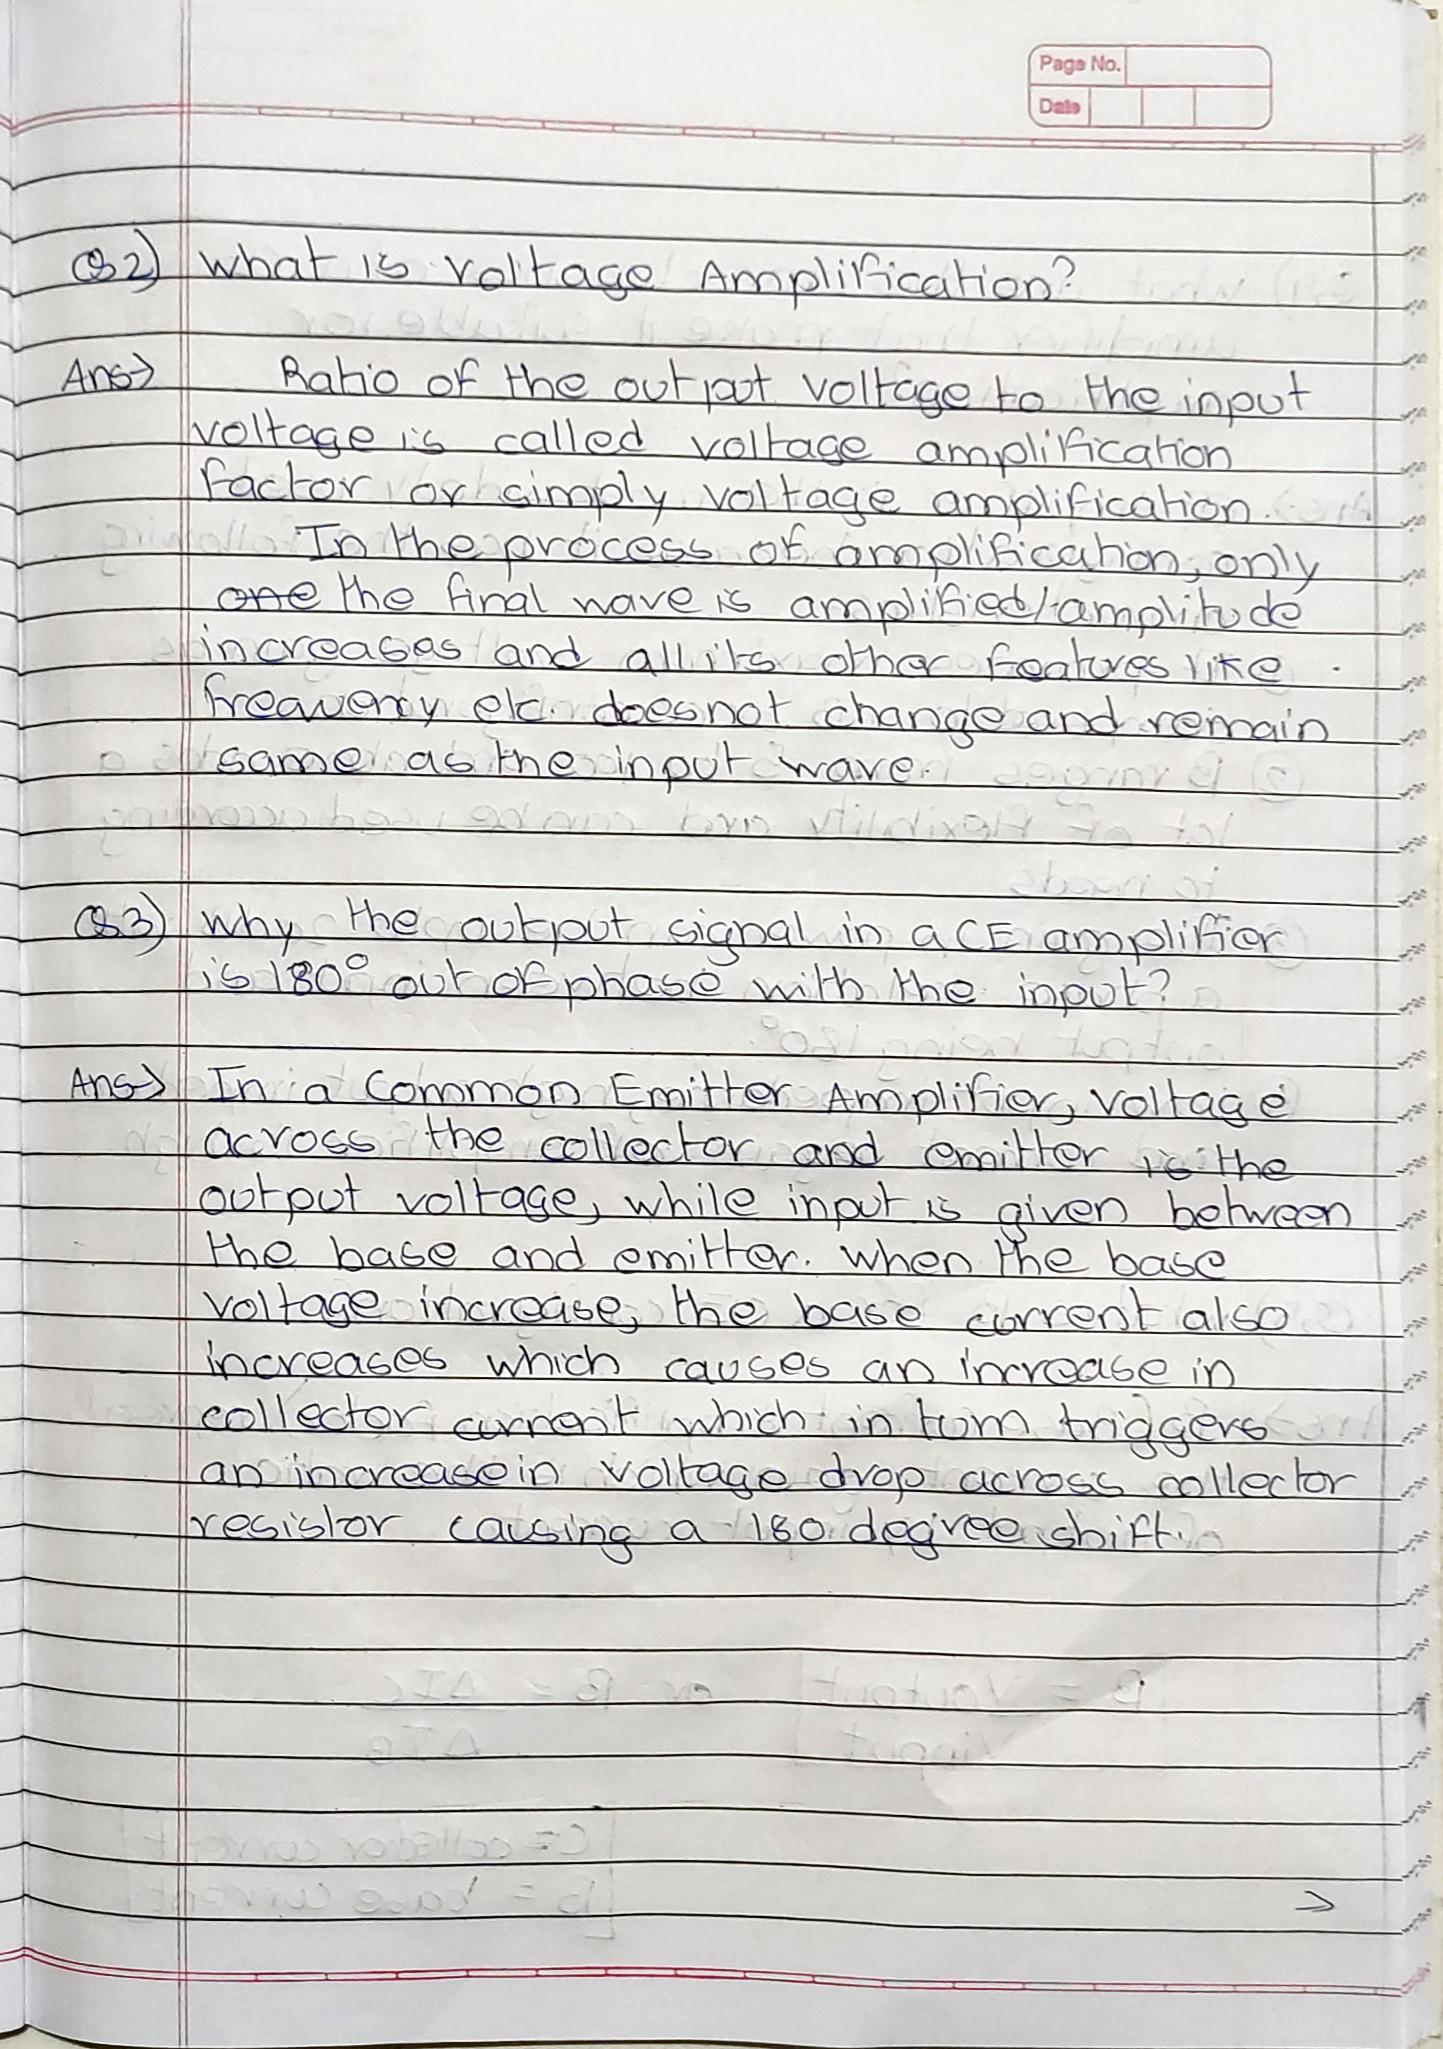 Page No.
Date
Q2) What is voltage Amplification?
Ans→ Ratio of the output voltage to the input
voltage is called voltage amplification
factor or simply voltage amplification.
In the process of amplification, only
one the final wave is amplified/amplitude
increases and all its other features like
frequency etc. does not change and remain
same as the input wave.
Q3) Why the output signal in a CE amplifier
is 180° out of phase with the input?
Ans→ In a Common Emitter Amplifier, voltage
across the collector and emitter is the
output voltage, while input is given between
the base and emitter. When the base
voltage increase, the base current also
increases which causes an increase in
collector current which in turn triggers
an increase in voltage drop across collector
resistor causing a 180 degree shift.
→